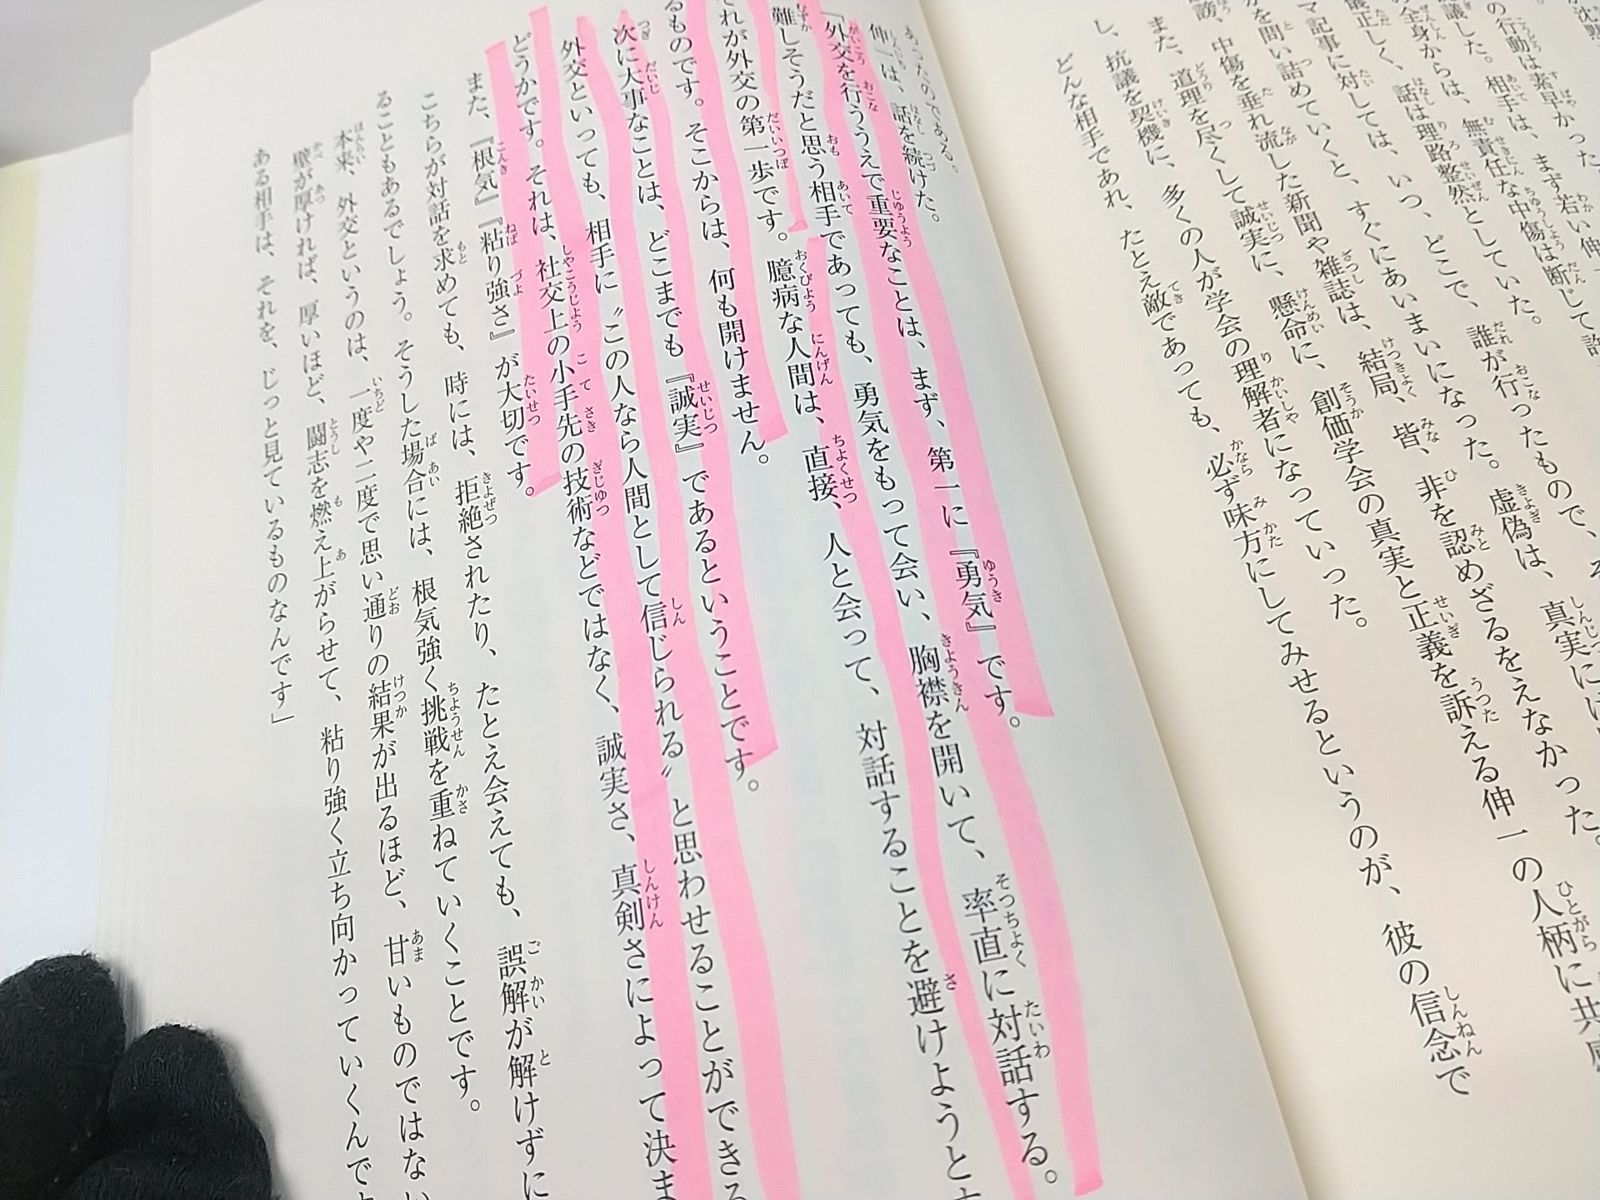 の行動は若早かった
議した。相手は、まず若い伸
の全身からは、無責任な中傷は断じて許
儀正しく、話は理路整然としていた。
マ記事に対しては、いつ、どこで、誰が行ったもので、そ
かを問い詰めていくと、すぐにあいまいになった。虚偽は、真実には
謗、中傷を垂れ流した新聞や雑誌は、結局、皆、非を認めざるをえなかった。
また、道理を尽くして誠実に、懸命に、創価学会の真実と正義を訴える伸一の人柄に共感
し、抗議を契機に、多くの人が学会の理解者になっていった。
どんな相手であれ、たとえ敵であっても、必ず味方にしてみせるというのが、彼の信念で
あったのである。
伸一は、話を続けた。
「外交を行ううえで重要なことは、まず、第一に『勇気』です。
難しそうだと思う相手であっても、勇気をもって会い、胸襟を開いて、率直に対話する。
それが外交の第一歩です。臆病な人間は、直接、人と会って、対話することを避けようと
るものです。そこからは、何も開けません。
次に大事なことは、どこまでも『誠実』であるということです。
外交といっても、相手に〝この人なら人間として信じられる〟と思わせることができる
どうかです。それは、社交上の小手先の技術などではなく、誠実さ、真剣さによって決ま
また、『根気』『粘り強さ』が大切です。
こちらが対話を求めても、時には、拒絶されたり、たとえ会えても、誤解が解けずに
ることもあるでしょう。そうした場合には、根気強く挑戦を重ねていくことです。
本来、外交というのは、一度や二度で思い通りの結果が出るほど、甘いものではない
壁が厚ければ、厚いほど、闘志を燃え上がらせて、粘り強く立ち向かっていくんです
ある相手は、それを、じっと見ているものなんです」